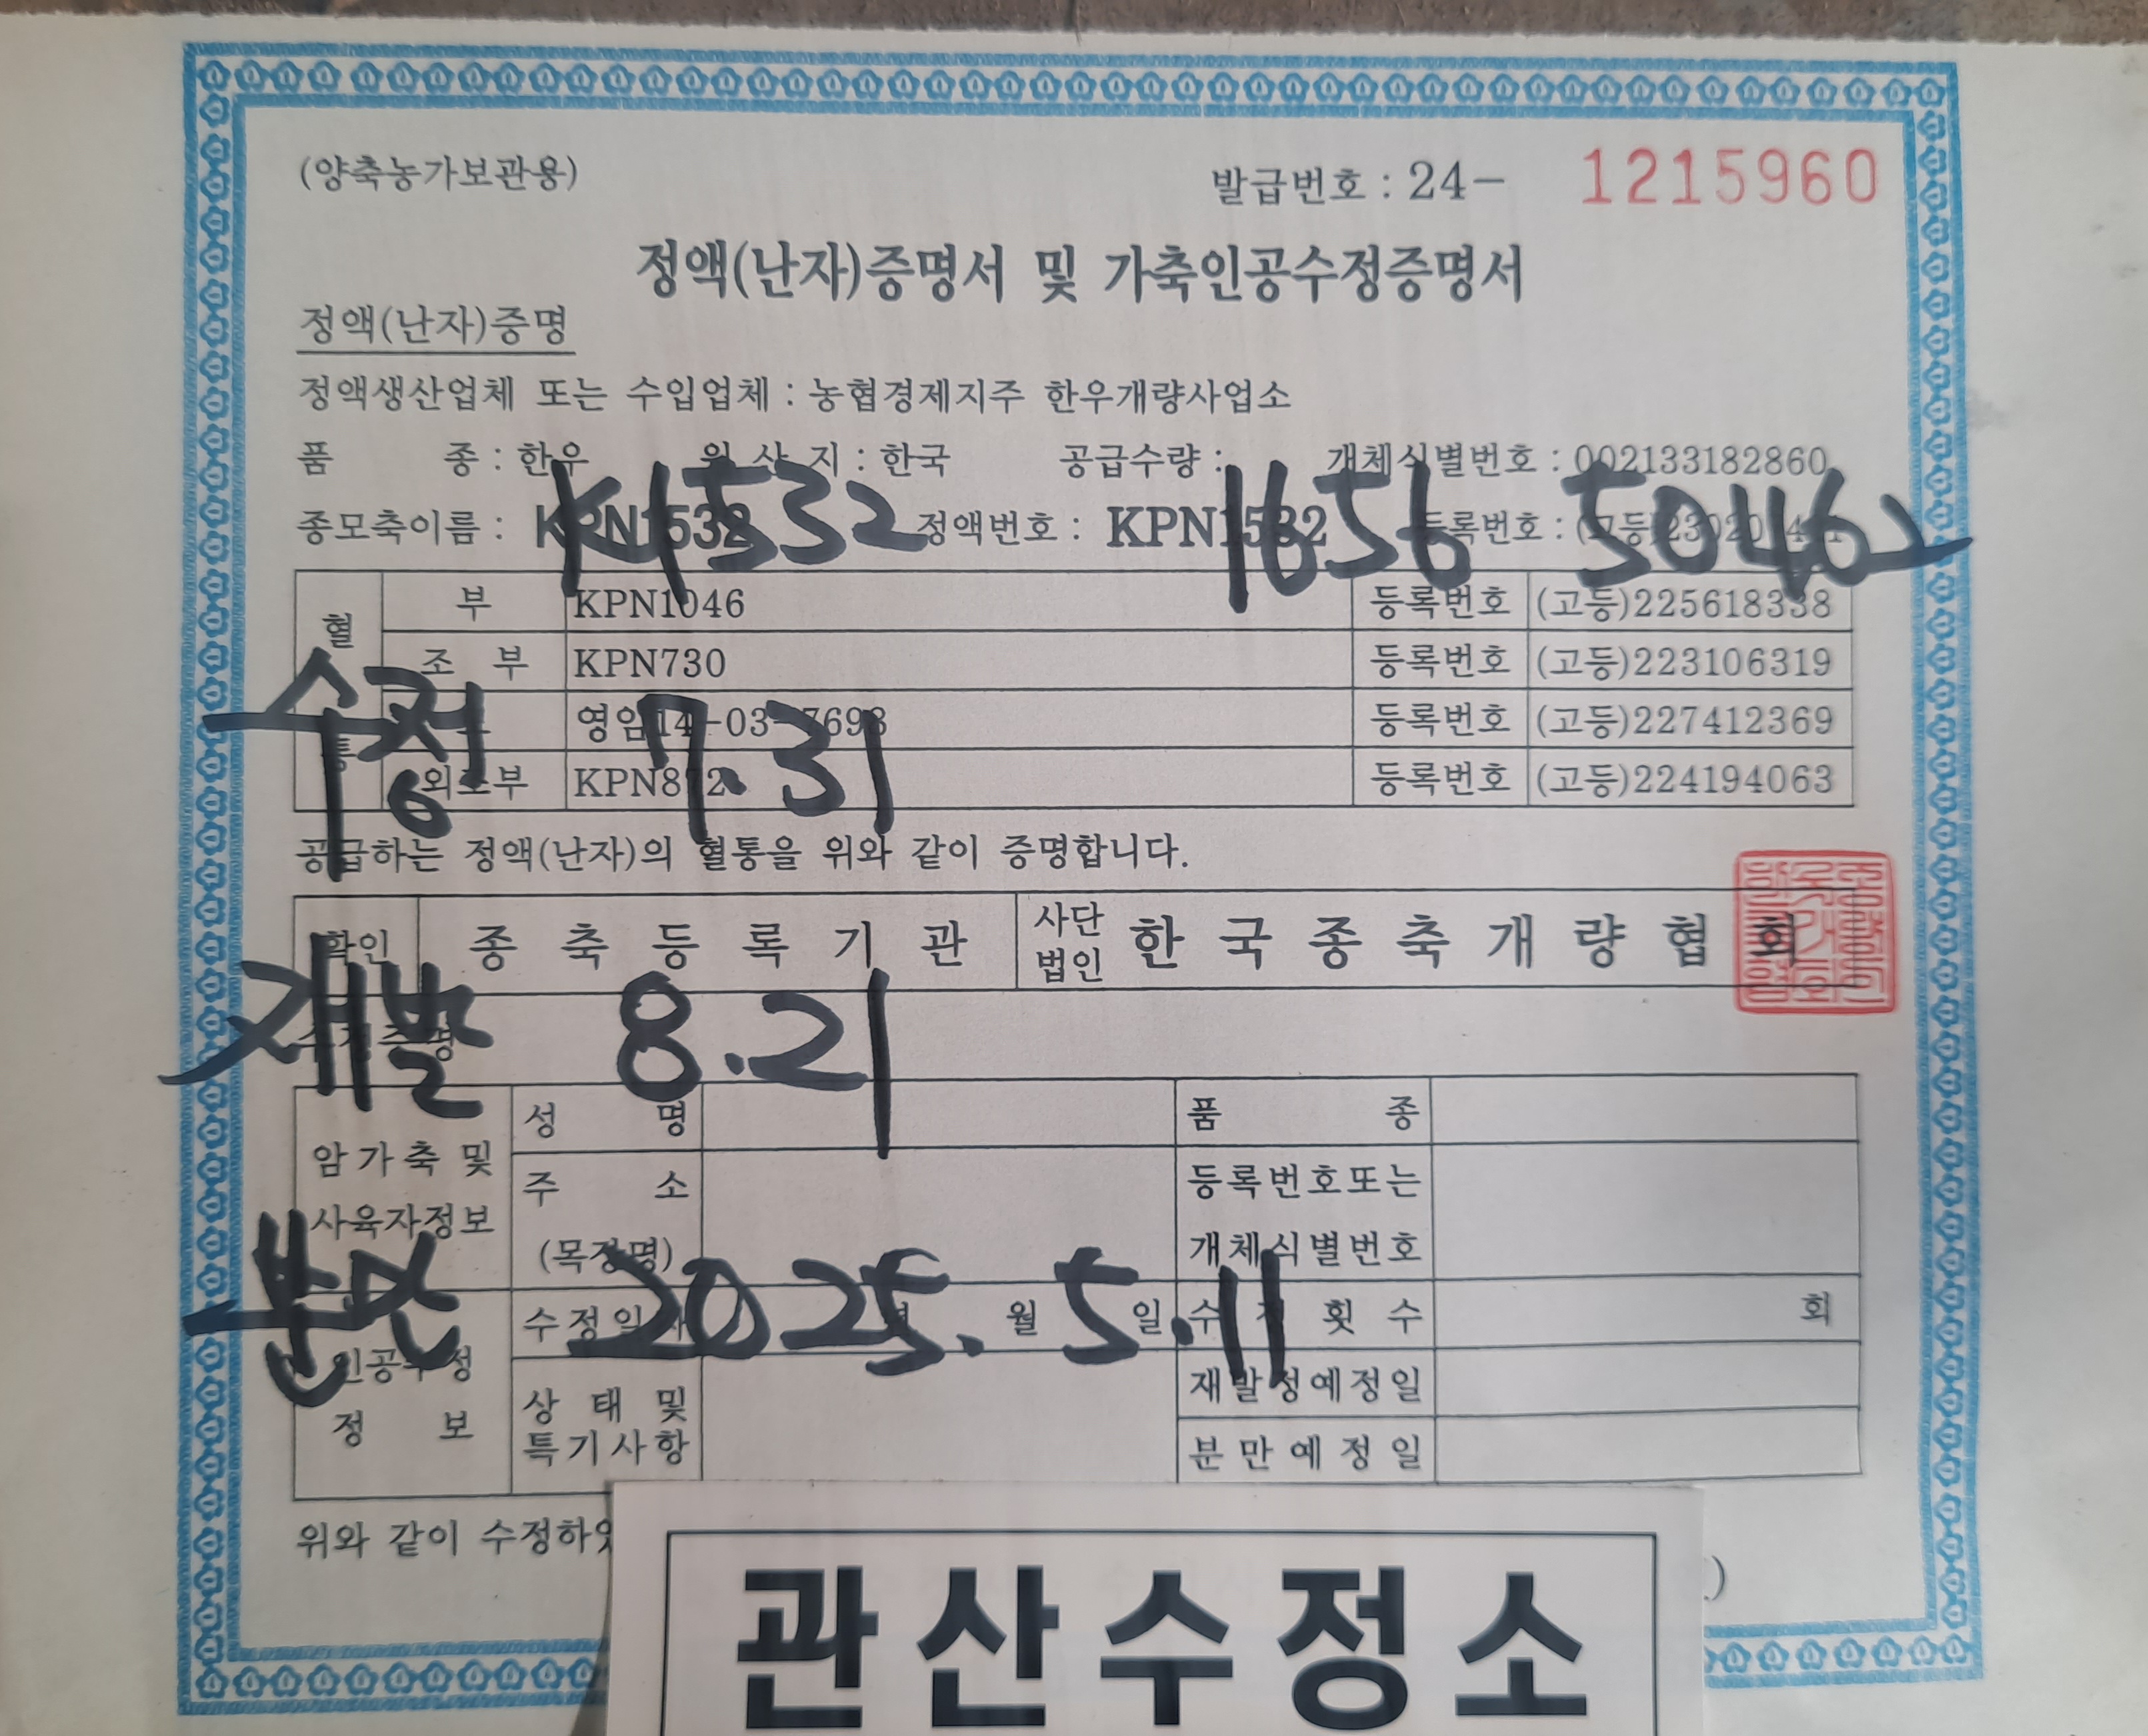 (양축농가보관용)
발급번호 : 24- 1215960
정액(난자)증명서 및 가축인공수정증명서
정액(난자)증명
정액생산업체 또는 수입업체 : 농협경제지주 한우개량사업소
품 종 : 한우 원 산 지 : 한국 공급수량 : 개체식별번호 : 002133182860
종모축이름 : KPN1532 정액번호 : KPN1532 등록번호 :
K1532 1656 50462
혈통
부 KPN1046 등록번호 (고등)225618338
조 부 KPN730 등록번호 (고등)223106319
영암14-03-7693 등록번호 (고등)227412369
외조부 KPN872 등록번호 (고등)224194063
수정 7.31
공급하는 정액(난자)의 혈통을 위와 같이 증명합니다.
확인 종 축 등 록 기 관 사단법인 한 국 종 축 개 량 협 회
재발 8.21
수정증명
암가축 및 사육자정보
성 명 품 종
주 소 (목장명) 등록번호또는 개체식별번호
분만 2025.5.11
인공수정 정 보
수정일시 년 월 일 수 정 횟 수 회
상 태 및 특기사항 재발정예정일
분만예정일
위와 같이 수정하였
관산수정소